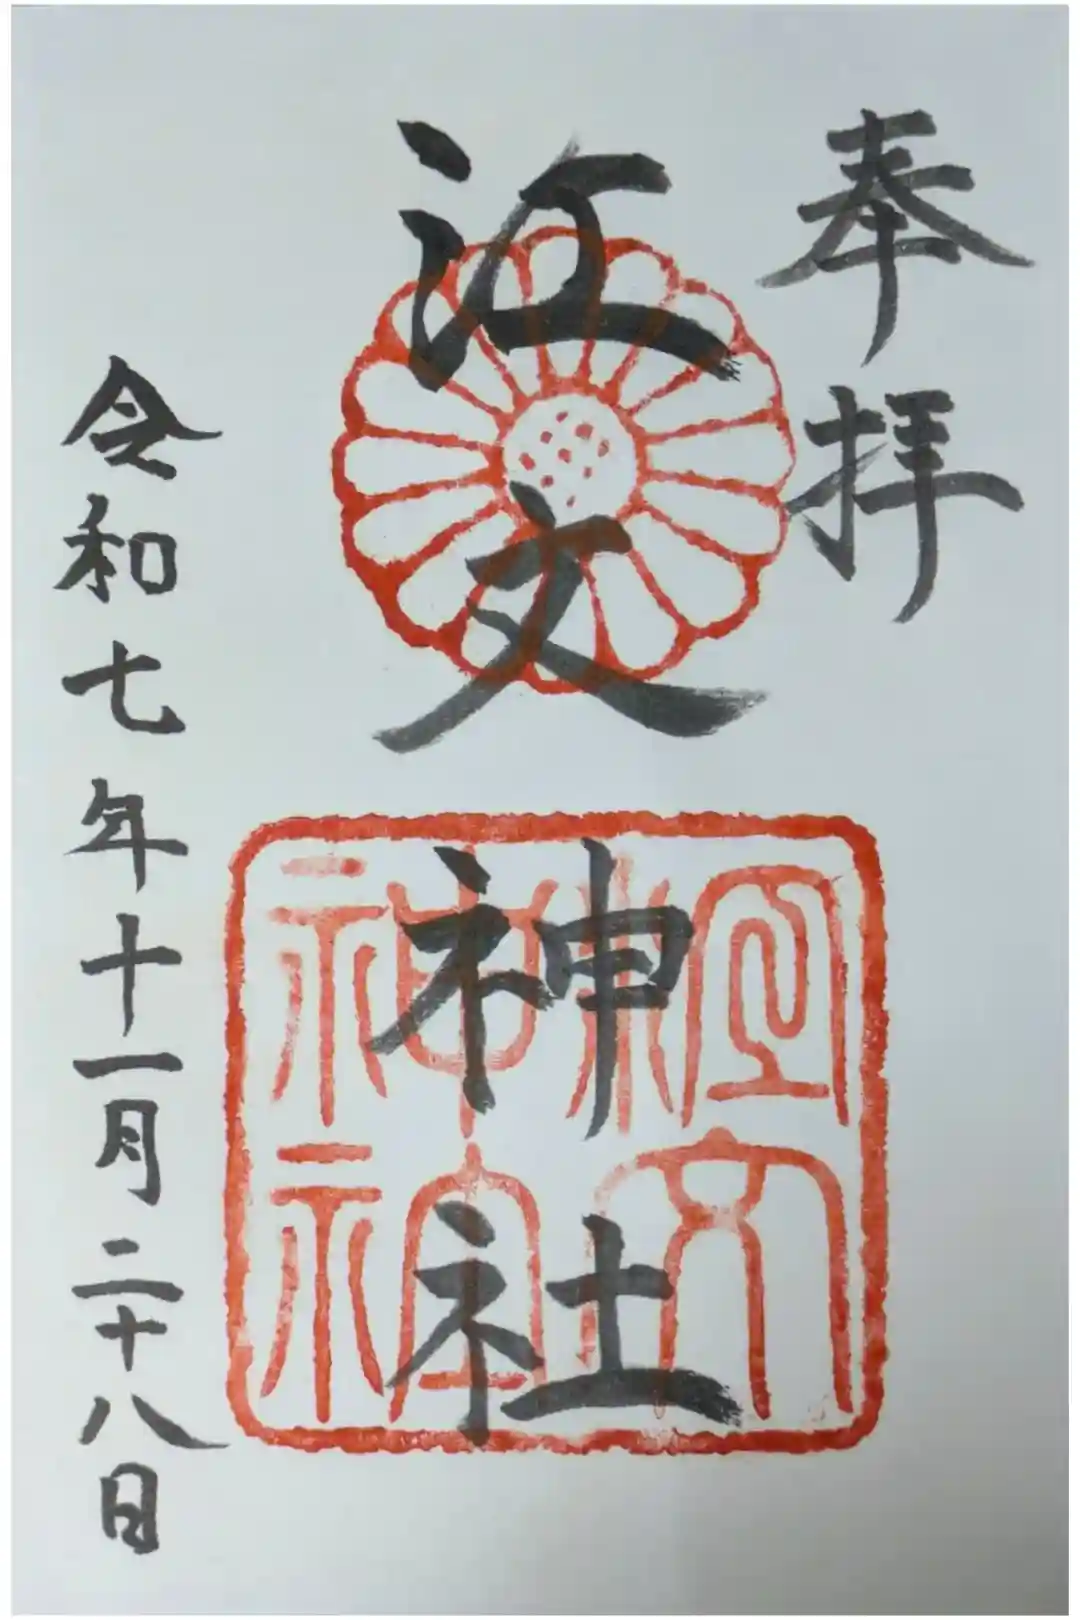 奉拝
江文神社
江文
神社
令和七年十一月二十八日